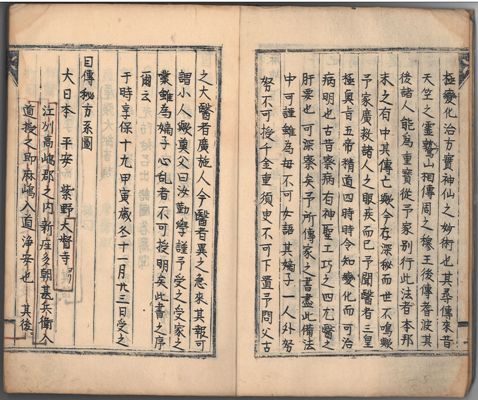 極變化治方實神仙之妙術也其夢傳來昔
天竺之靈鷲山相傳周之穆王後傳普波其
後諸人能為重寳從予家別行此法者本邦
未之有中其傳亡歟今在深秘而世不鳴歟
予家廣救諸人之眼疾而已予聞醫者三皇
極奥旨五帝精道四時時令知變化而可治
病明也古昔察病右神聖工巧之四尤醫之
肝要也可深察矣予所傳家之書盡此備法
中可謹雖為毋不可女語其嫡子一人外努
努不可授千金重須史不可卜置予問父古
之大醫者廣施人今醫者異之急來其報可
謂小人歟奠父曰汝勤學謹予受之受家之
業雖為嫡子心乱者不可授明矣此書之序
爾云
于時享保十九甲寅歳冬十一月廾三日受之
目傳秘方系圖
大日本 平安 紫野大督寺ヨリ
江刕高嶋郡之内新庄多朝甚兵衛入
道授之即麻嶋入道淨安也 其後